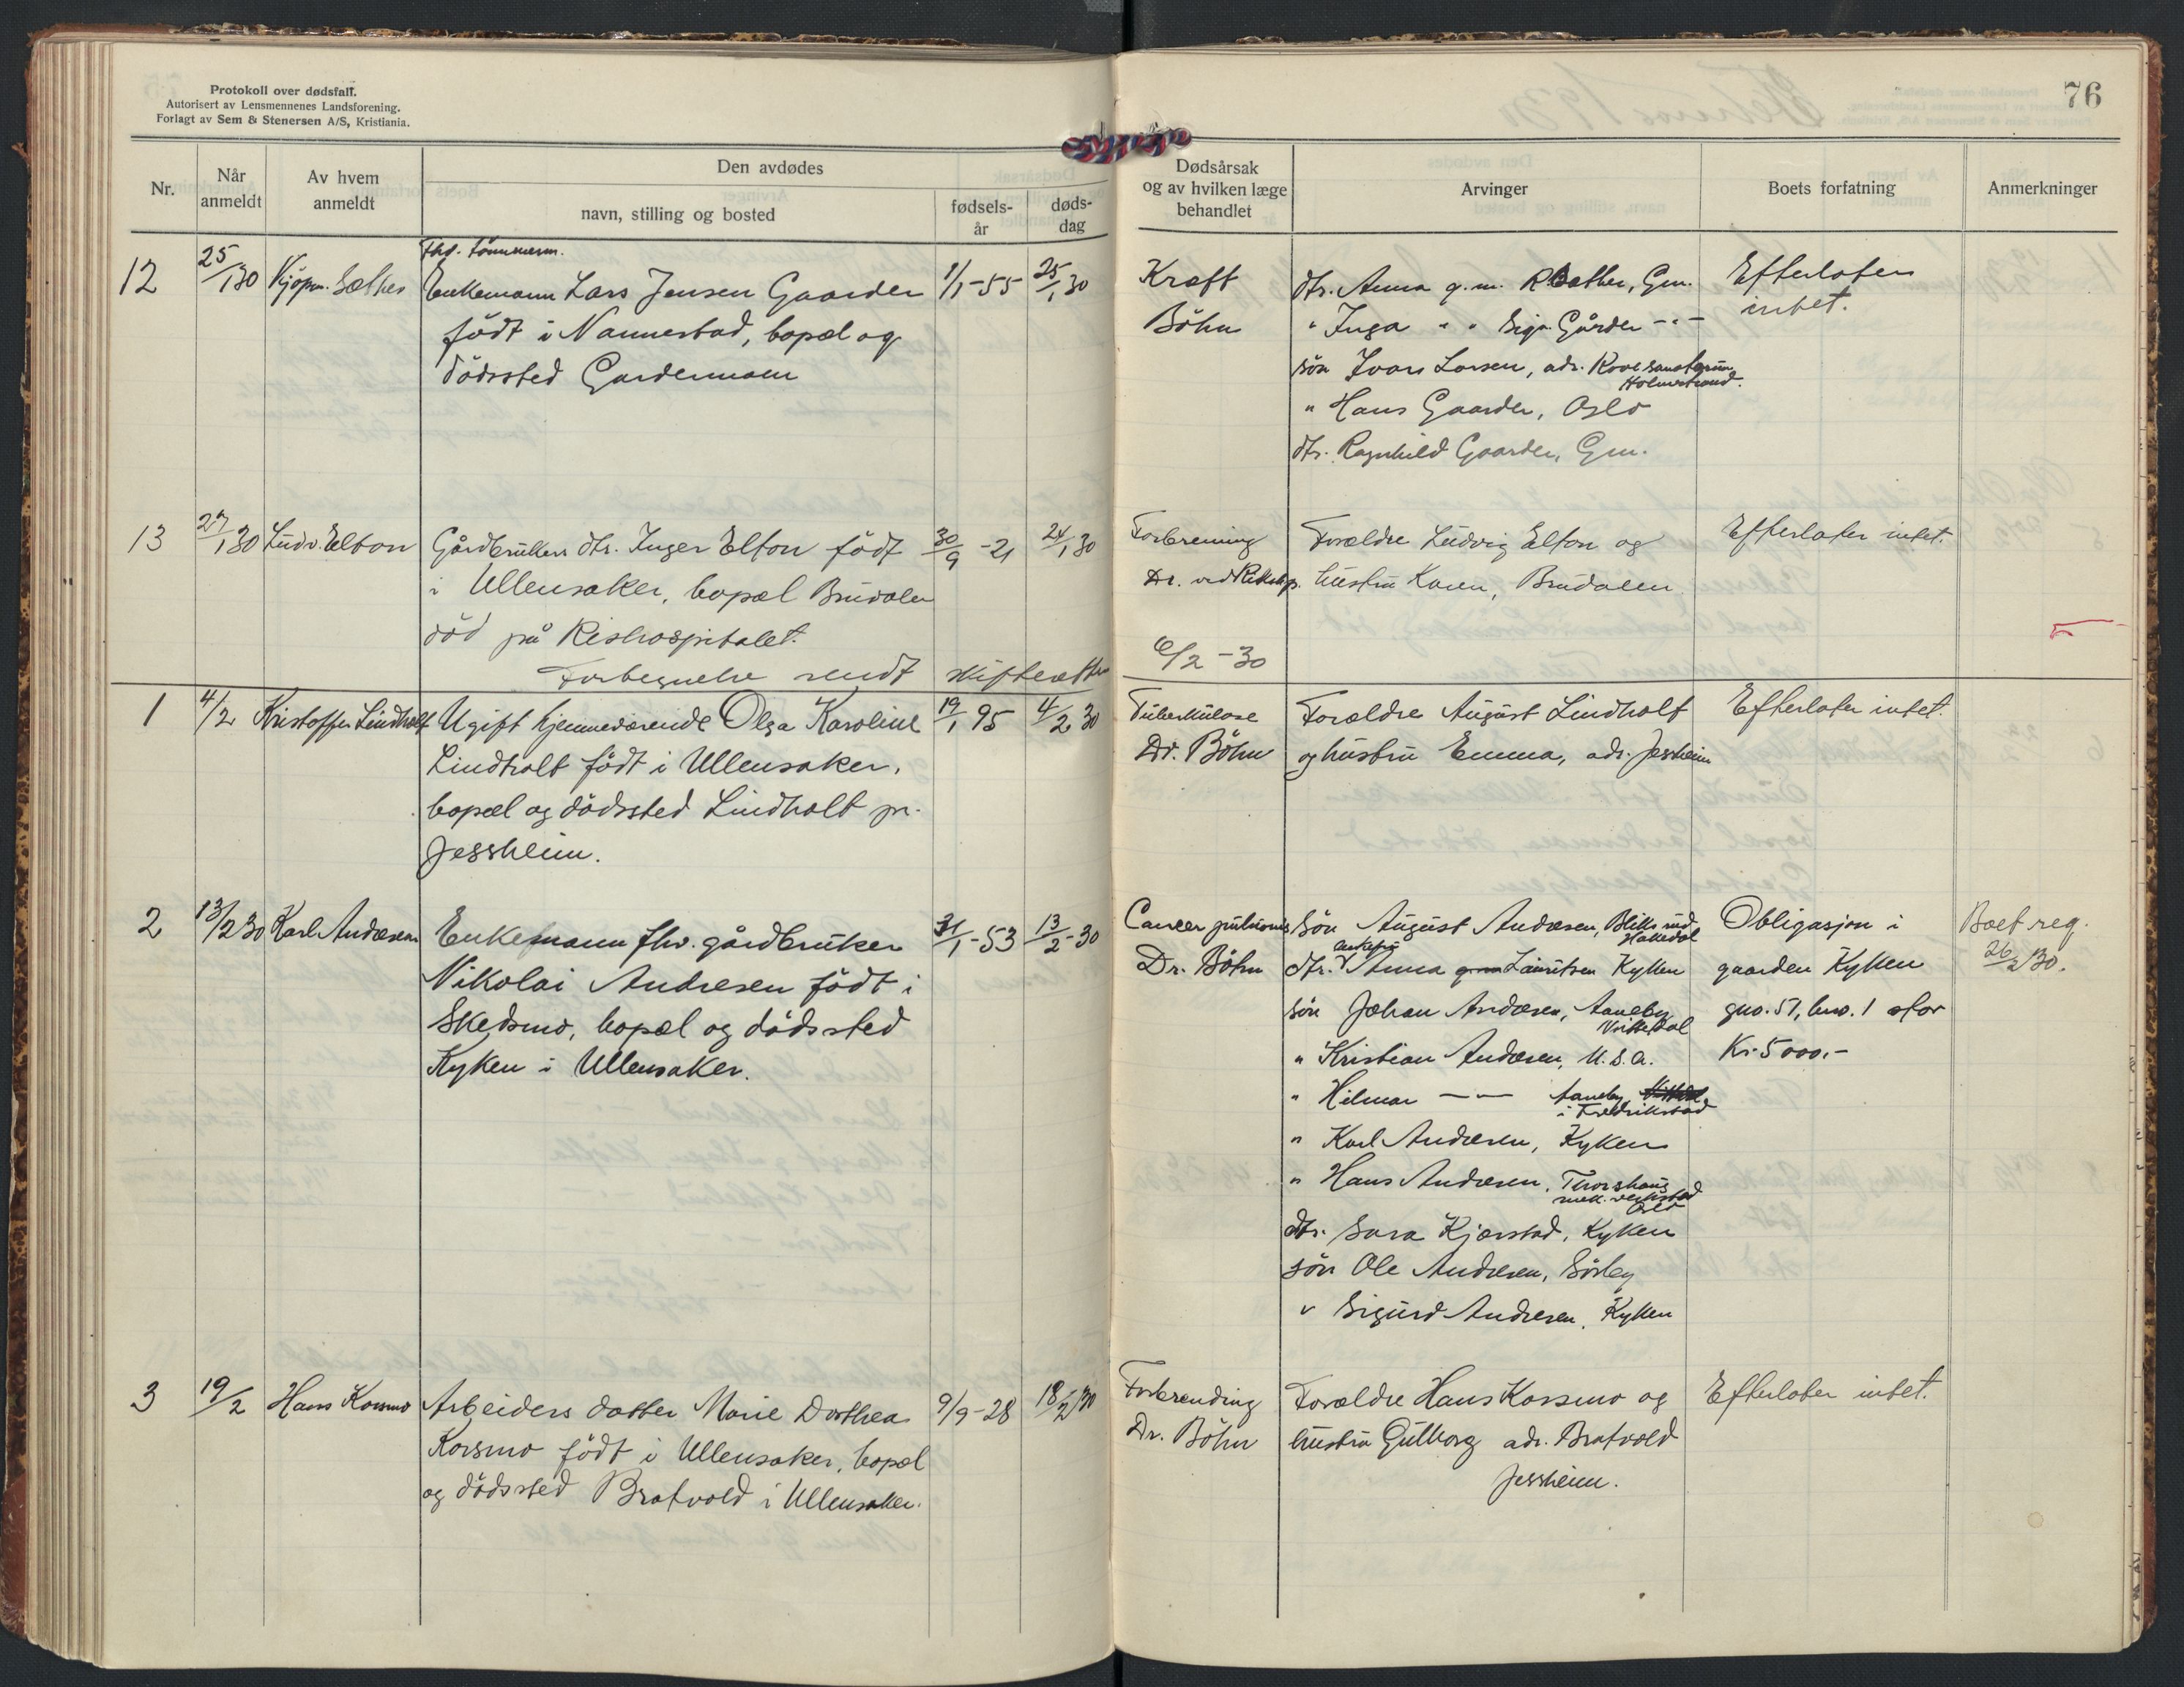 Protokoll over dødsfall.
Autorisert av Lensmennenes Landsforening.
Forlagt av Sem & Stenersen A/S, Kristiania.
76
Nr.
Når anmeldt
Av hvem anmeldt
Den avdødes
navn, stilling og bosted
fødsels-år
døds-dag
Dødsårsak og av hvilken læge behandlet
Arvinger
Boets forfatning
Anmerkninger
12
25/1 30
Kjøpm. Sæther
fhv. tömmerm.
Enkemann Lars Jensen Gaarder
födt i Nannestad, bopæl og
dödssted Gardermoen
1/1-55
25/1 30
Kræft
Böhn
dtr. Anna g.m. R Sæther, Gm.
" Inga " " Sign Gårder - " -
sön Ivar Larsen, adr. Rove sanatorium
Holmestrand.
" Hans Gaarder, Oslo
dtr. Ragnhild Gaarder, Gm.
Efterlater
intet.
13
27/1 30
Ludv. Elton
Gårdbrukers dtr. Inger Elton födt
i Ullensaker, bopæl Brudalen
död på Rikshospitalet.
30/9-21
24/1 30
Forbrenning
Dr. ved Rikshsp.
Forældre Ludvig Elton og
hustru Karen, Brudalen
Efterlater intet.
Forte​gnelse sendt skifteretten
6/2-30
1
4/2
Kristoffer Lindholt
Ugift hjemmeværende Olga Karoline
Lindholt födt i Ullensaker,
bopæl og dödssted Lindholt pr.
Jessheim.
19/1 95
4/2 30
Tuberkulose
Dr. Böhn
Forældre August Lindholt
og hustru Emma, adr. Jessheim
Efterlater intet.
2
13/2 30
Karl Andresen
Enkemann fhv. gårdbruker
Nikolai Andresen födt i
Skedsmo, bopæl og dödssted
Kyken i Ullensaker.
31/1-53
13/2-30
Cancer pulmonis
Dr. Böhn
Sön August Andresen, Bliksrud
Hakedal
enkefru
dtr. Anna Lauritsen Kyken
sön Johan Andresen, Aaneby
Vittedal
" Kristian Andresen, U.S.A.
" Hilmar — " — Aaneby
i Fredrikstad
" Karl Andresen, Kyken
" Hans Andresen, Thorshaug
mek. verksted
Oslo
dtr. Sara Kjærstad, Kyken
sön Ole Andresen, Sörby
" Sigurd Andresen, Kyken
Obligasjon i
gaarden Kyken
gno. 57, bno. 1 stor
Kr. 5000.-
Boet reg.
26/2 30.
3
19/2
Hans Korsmo
Arbeiders datter Marie Dorthea
Korsmo födt i Ullensaker, bopæl
og dödssted Bratvold i Ullensaker.
9/9-28
18/2 30
Forbrending
Dr. Böhn
Forældre Hans Korsmo og
hustru Gulborg adr. Bratvold
Jessheim.
Efterlater intet.